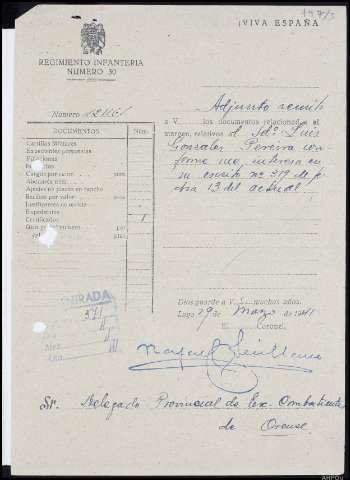 147/3
¡VIVA ESPAÑA
REGIMIENTO INFANTERIA
NUMERO 30
Número
DOCUMENTOS
Núm.
Cartillas Militares
Expedientes propuestas
Cargos por
Abonarés
Ajustes no puesto en rancho
Recibos por valor pesetas
Justificantes de revista
Expedientes
Certificados 1
Giro postal
Adjunto remito
a V. los documentos relacionados al
margen, relativos al Sdº. Luis
Gonzalez Pereira con
forme me interesa en
su escrito nº 319 de fe
cha 13 del actual.
Dios guarde a V. S. muchos años.
Lugo 29 de Marzo de 1941
El Coronel,
ENTRADA
Sr. Delegado Provincial de Ex. Combatientes
de Orense
AHPOU